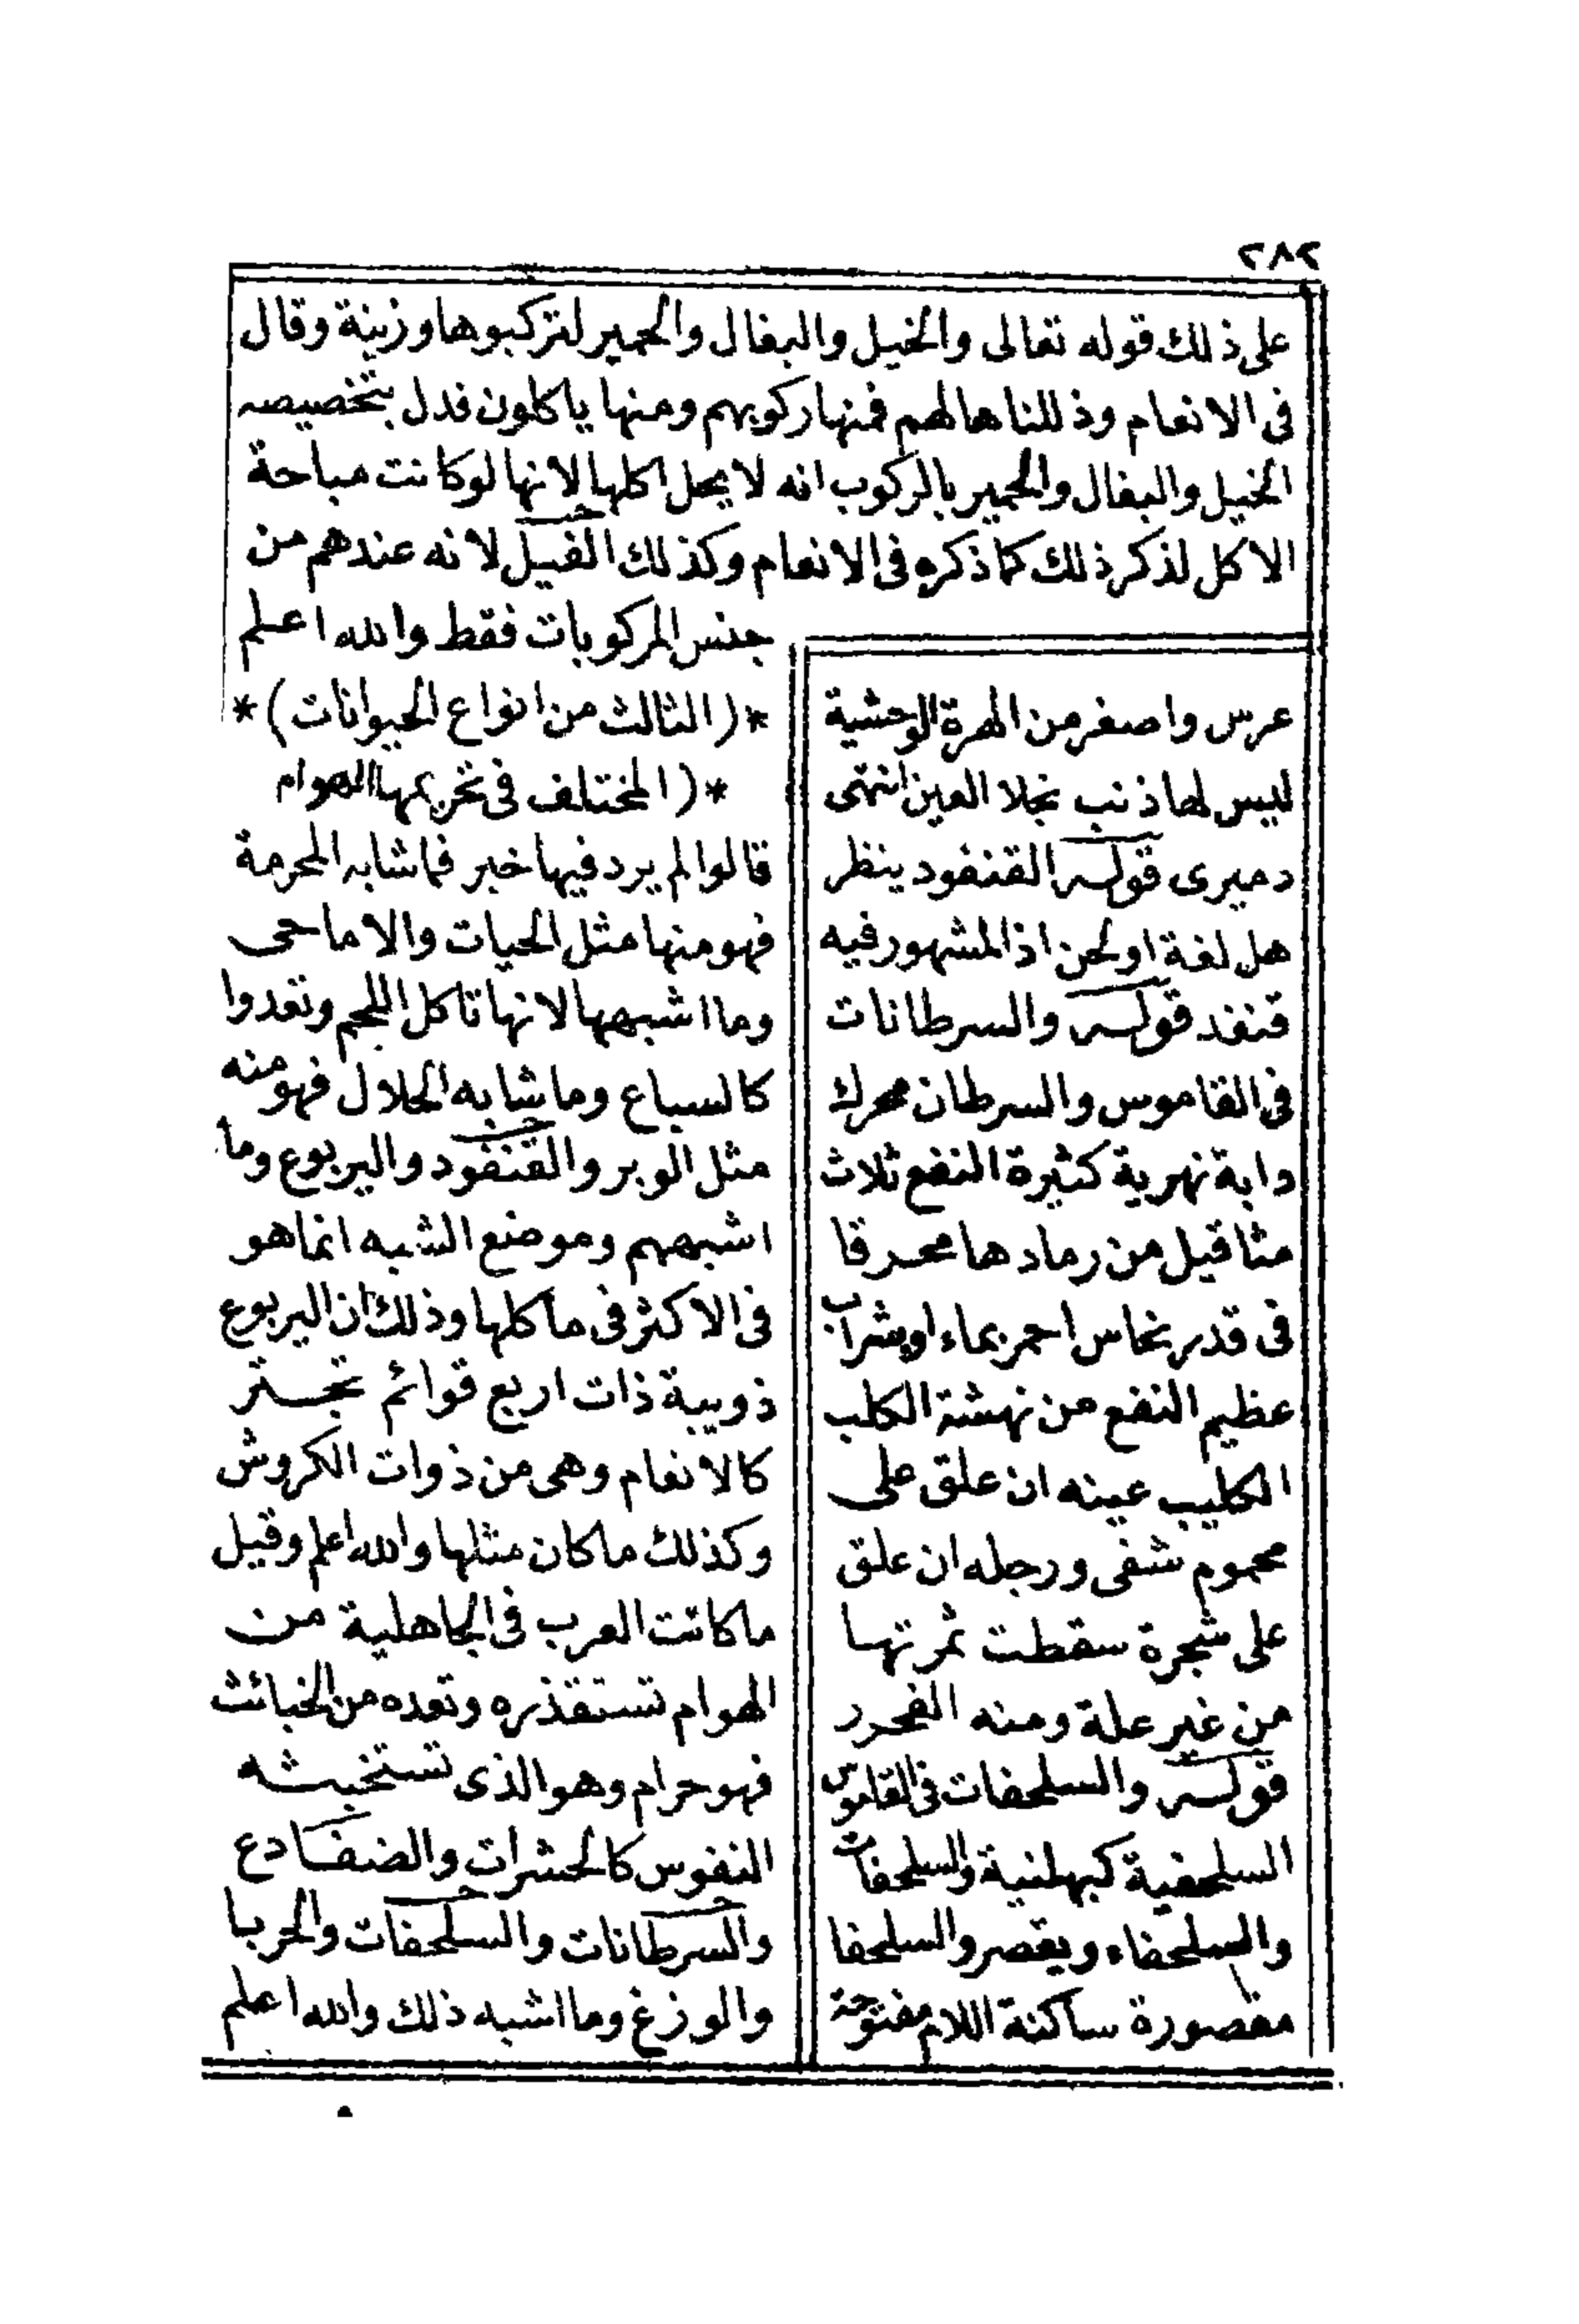 ٢٨٢
على ذلك قوله تعالى والخيل والبغال والحمير لتركبوها وزينة وقال
فى الانعام وذللناها لهم فمنها ركوبهم ومنها ياكلون فدل بتخصيصه
الخيل والبغال والحمير بالركوب انه لا يحل اكلها لانها لو كانت مباحة
الاكل لذكر ذلك كما ذكره فى الانعام وكذلك الفيل لانه عندهم من
جنس المركوبات فقط والله اعلم
*(الثالث من انواع الحيوانات)*
*(المختلف فى تحريمها الهوام
قالوا لم يرد فيها خبر فما شابه المحرمة
فهو منها مثل الحيات والاماحى
وما اشبهها لانها تاكل اللحم وتعدوا
كالسباع وما شابه الحلال فهو منه
مثل الوبر والقنفود واليربوع وما
اشبههم وموضع الشبه انما هو
فى الاكثر فى ماكلها وذلك ان اليربوع
ذويبة ذات اربع قوائم تجتر
كالانعام وهى من ذوات الكروش
وكذلك ما كان مثلها والله اعلم وقيل
ما كانت العرب فى الجاهلية من
الهوام تستقذره وتعده من الخبائث
فهو حرام وهو الذى تستخبثه
النفوس كالحشرات والضفادع
والسرطانات والسلحفات والحربا
والوزغ وما اشبه ذلك والله اعلم
عرس واصغر من الهرة الوحشية
ليس لها ذنب نجلا العين انتهى
دميرى قوله القنفود ينظر
هل لغة او لحن اذ المشهور فيه
قنفد قوله والسرطانات
فى القاموس والسرطان محرك
دابة نهرية كثيرة النفع ثلاث
مثاقيل من رمادها محرقا
فى قدر نحاس احمر بماء او بشراب
عظيم النفع من نهشة الكلب
الكليب عينه ان علق على
محموم شفى ورجله ان علق
على شجرة سقطت ثمرتها
من غير علة ومنه
قوله والسلحفات فى القاموس
السلحفية كبهلنية والسلحفات
والسلحفاء ويقصر والسلحفا
مقصورة ساكنة اللام مفتوحة